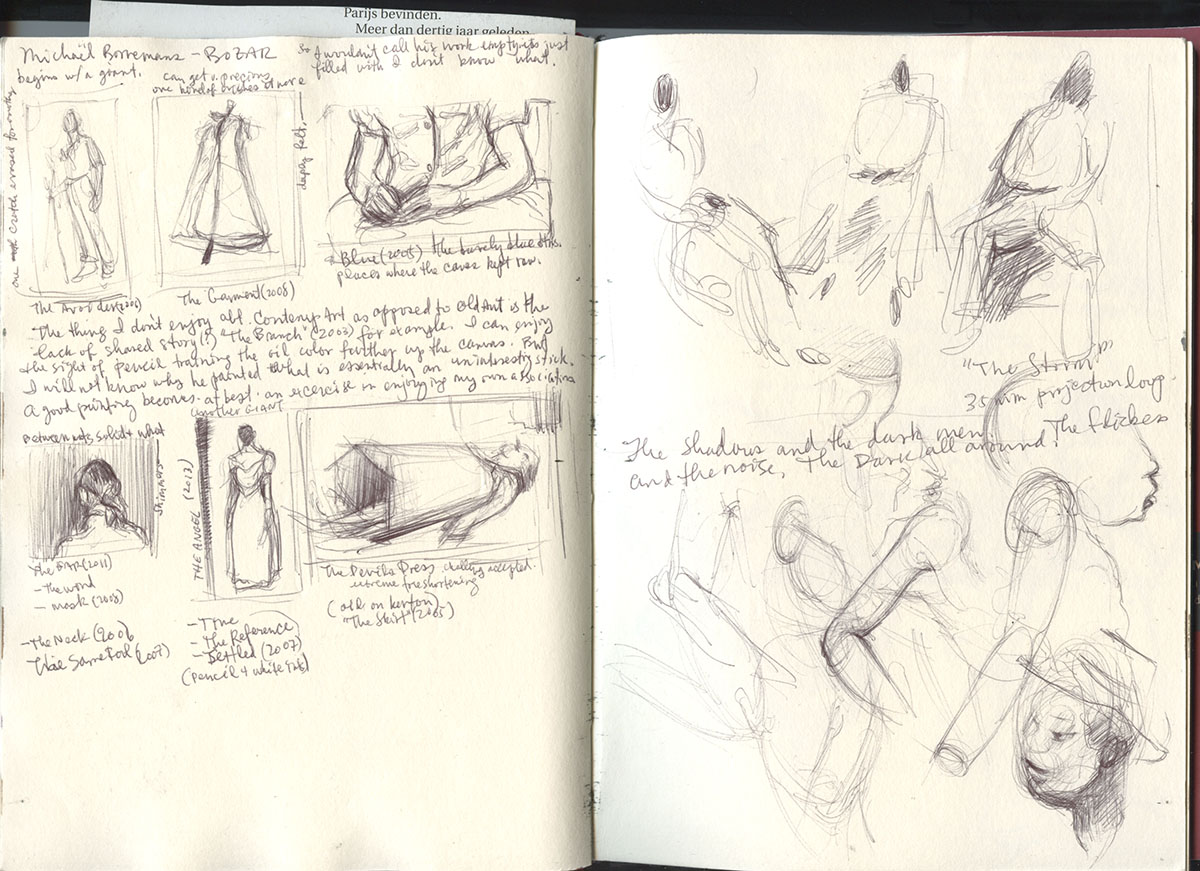 Parijs bevinden.
Meer dan dertig jaar geleden
Michaël Borremans - BOZAR
begins w/ a giant.
can get v. precious
one handed
So I wouldn't call his work empty its just
filled with I don't know what.
deeply felt.
one crutch erased
The Avoider (2006)
The Garment (2008)
Blue (2005) the barely blue
places where the canvas kept raw.
The thing I don't enjoy abt. Contemp Art as opposed to Old Art is the
lack of shared story (!) "The Branch" (2003) for example. I can enjoy
the sight of pencil training the oil color further up the canvas. But
I will not know why he painted what is essentially an uninteresting stick.
A good painting becomes, at best, an exercise in enjoying my own associations
another GIANT
Between solid + what
shimmers
THE ANGEL (2013)
The EAR (2011)
- the wind
- mask (2008)
- The Neck (2006)
The Same Fod (2007)
- Time
- The Reference
- Settled (2007)
(pencil + white ink)
The Devil's Dress challenge accepted.
extreme foreshortening
(oil on karton)
"The Skirt" (2005)
"The Storm"
35 mm projection loop.
The Shadows and the dark men. The flickers
and the noise, The Dark all around.